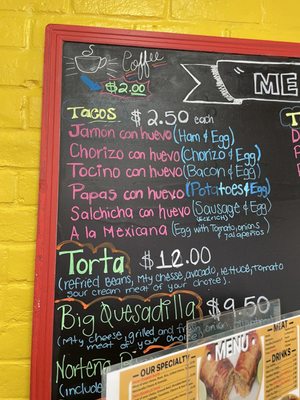 Coffee
$2.00
ME
Tacos $2.50 each
Jamon con huevo (Ham & Egg)
Chorizo con huevo (Chorizo & Egg)
Tocino con huevo (Bacon & Egg)
Papas con huevo (Potatoes & Egg)
Salchicha con huevo (Sausage & Egg)
A la Mexicana (Egg with Tomato, onions
& Jalapeños)
Torta $12.00
(refried Beans, Mty chesse, avocado, lettuce, Tomato
sour cream meat of your choice).
Big Quesadilla $9.50
(Mty cheese, grilled and
meat of your choice
Norteña
(includes
OUR SPECIALTY
MENU
DRINKS